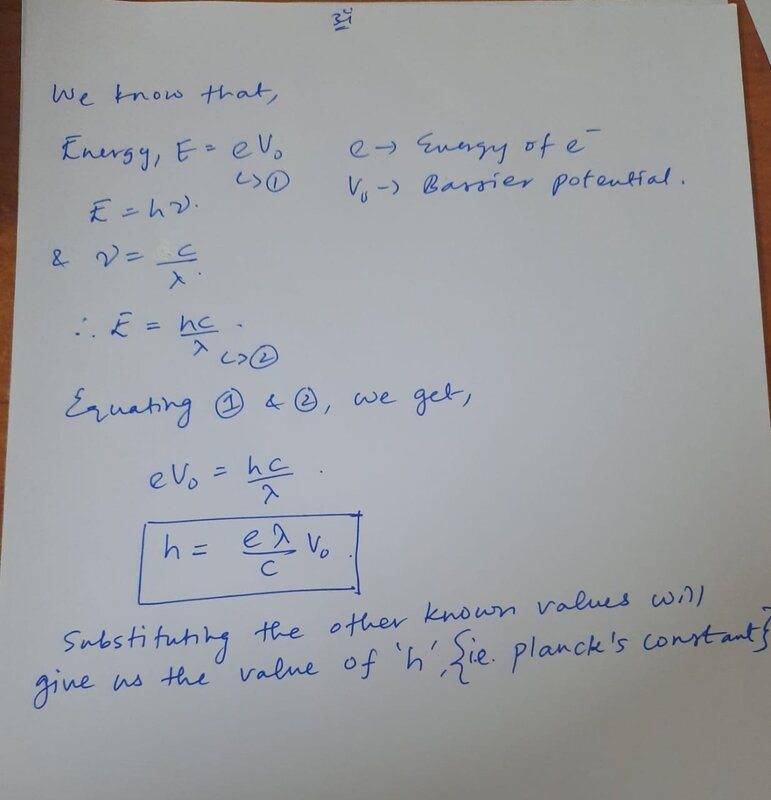 ॐ
We know that,
Energy, E = eV₀ e → Energy of e⁻
↳ ① V₀ → Barrier potential.
E = hν.
& ν = c/λ.
∴ E = hc/λ.
↳ ②
Equating ① & ②, we get,
eV₀ = hc/λ.
h = eλ/c V₀.
Substituting the other known values will
give us the value of 'h', {ie. planck's constant}